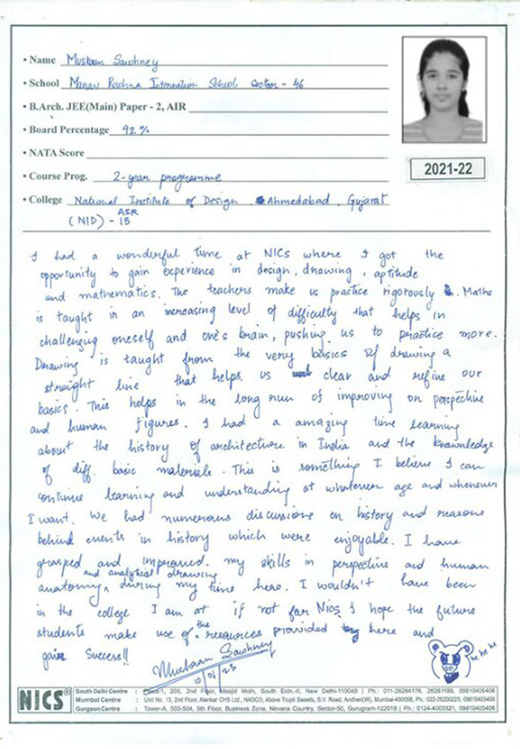 • Name Muskaan Sawhney
• School Manav Rachna Internation School Sector - 46
• B.Arch. JEE(Main) Paper - 2, AIR
• Board Percentage 92%
• NATA Score
• Course Prog. 2-year programme
2021-22
• College National Institute of Design, Ahmedabad, Gujarat
(NID) - AIR 15
I had a wonderful time at NICs where I got the
opportunity to gain experience in design, drawing, aptitude
and mathematics. The teachers make us practice rigorously. Maths
is taught in an increasing level of difficulty that helps in
challenging oneself and one's brain, pushing us to practice more.
Drawing is taught from the very basics of drawing a
straight line that helps us clear and refine our
basics. This helps in the long run of improving on perspective
and human figures. I had a amazing time learning
about the history of architecture in India and the knowledge
of diff. basic materials. This is something I believe I can
continue learning and understanding at whatever age and whenever
I want. We had numerous discussions on history and reasons
behind events in history which were enjoyable. I have
grasped and improved my skills in perspective and human
anatomy, and analytical drawing during my time here. I wouldn't have been
in the college I am at if not for Nics. I hope the future
students make use of the resources provided here and
gain success!!
Muskaan Sawhney
NICS
South Delhi Centre : 205, 2nd Floor, Masjid Moth, South Extn.-II, New Delhi-110049 | Ph.: 011-26264176, 26261199, 09810405408
Mumbai Centre : Unit No. 13, 2nd Floor, Alankar CHS Ltd., NADCO, Above Tropli Sweets, S.V. Road, Andheri(W), Mumbai-400058, Ph. 022-26200225, 09810405408
Gurgaon Centre : Tower-A, 503-504, 5th Floor, Business Zone, Nirvana Country, Sector-50, Gurugram-122018 | Ph.: 0124-4003321, 09810405408